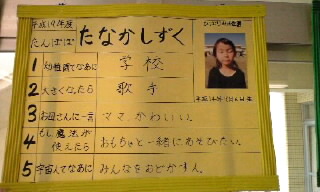 平成19年度
たんぽぽ
たなかしずく
1 幼稚園てなあに 学校
2 大きくなったら 歌手
3 お母さんに一言 ママ、かわいい。
4 もし魔法が使えたら おもちゃと一緒にあそびたい。
5 宇宙人てなあに みんなをおどかす人